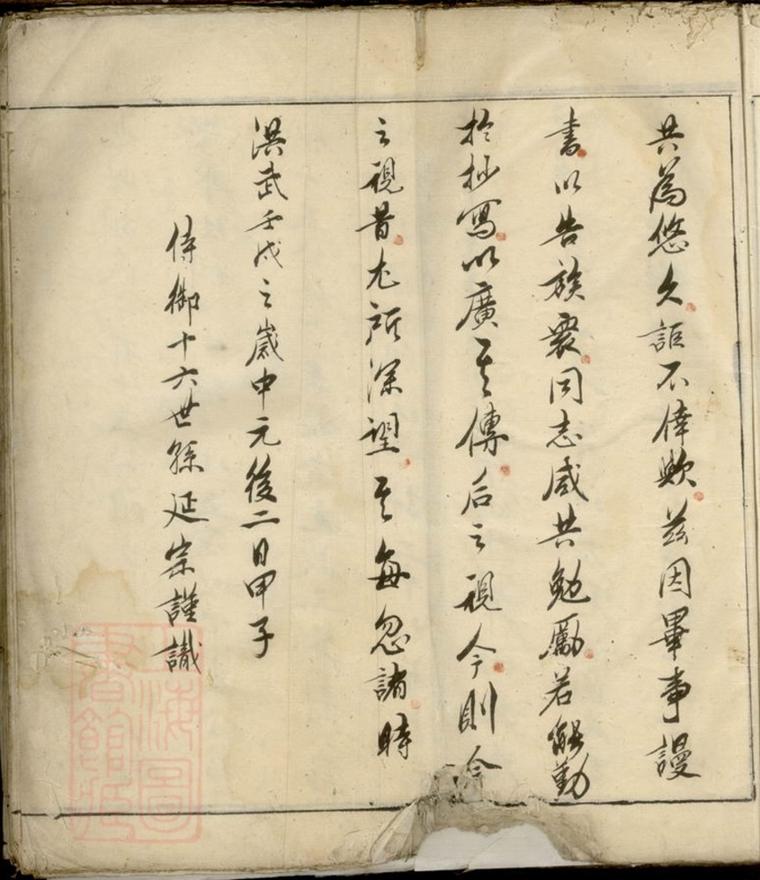 共為悠久詎不偉歟茲因畢事謾
書以告族衆同志咸共勉勵若能勤
於抄寫以廣其傳后之視今則今
之視昔尤所深望其毋忽諸時
洪武壬戌之歲中元後二日甲子
侍御十六世孫延宗謹識
上海圖
書館藏